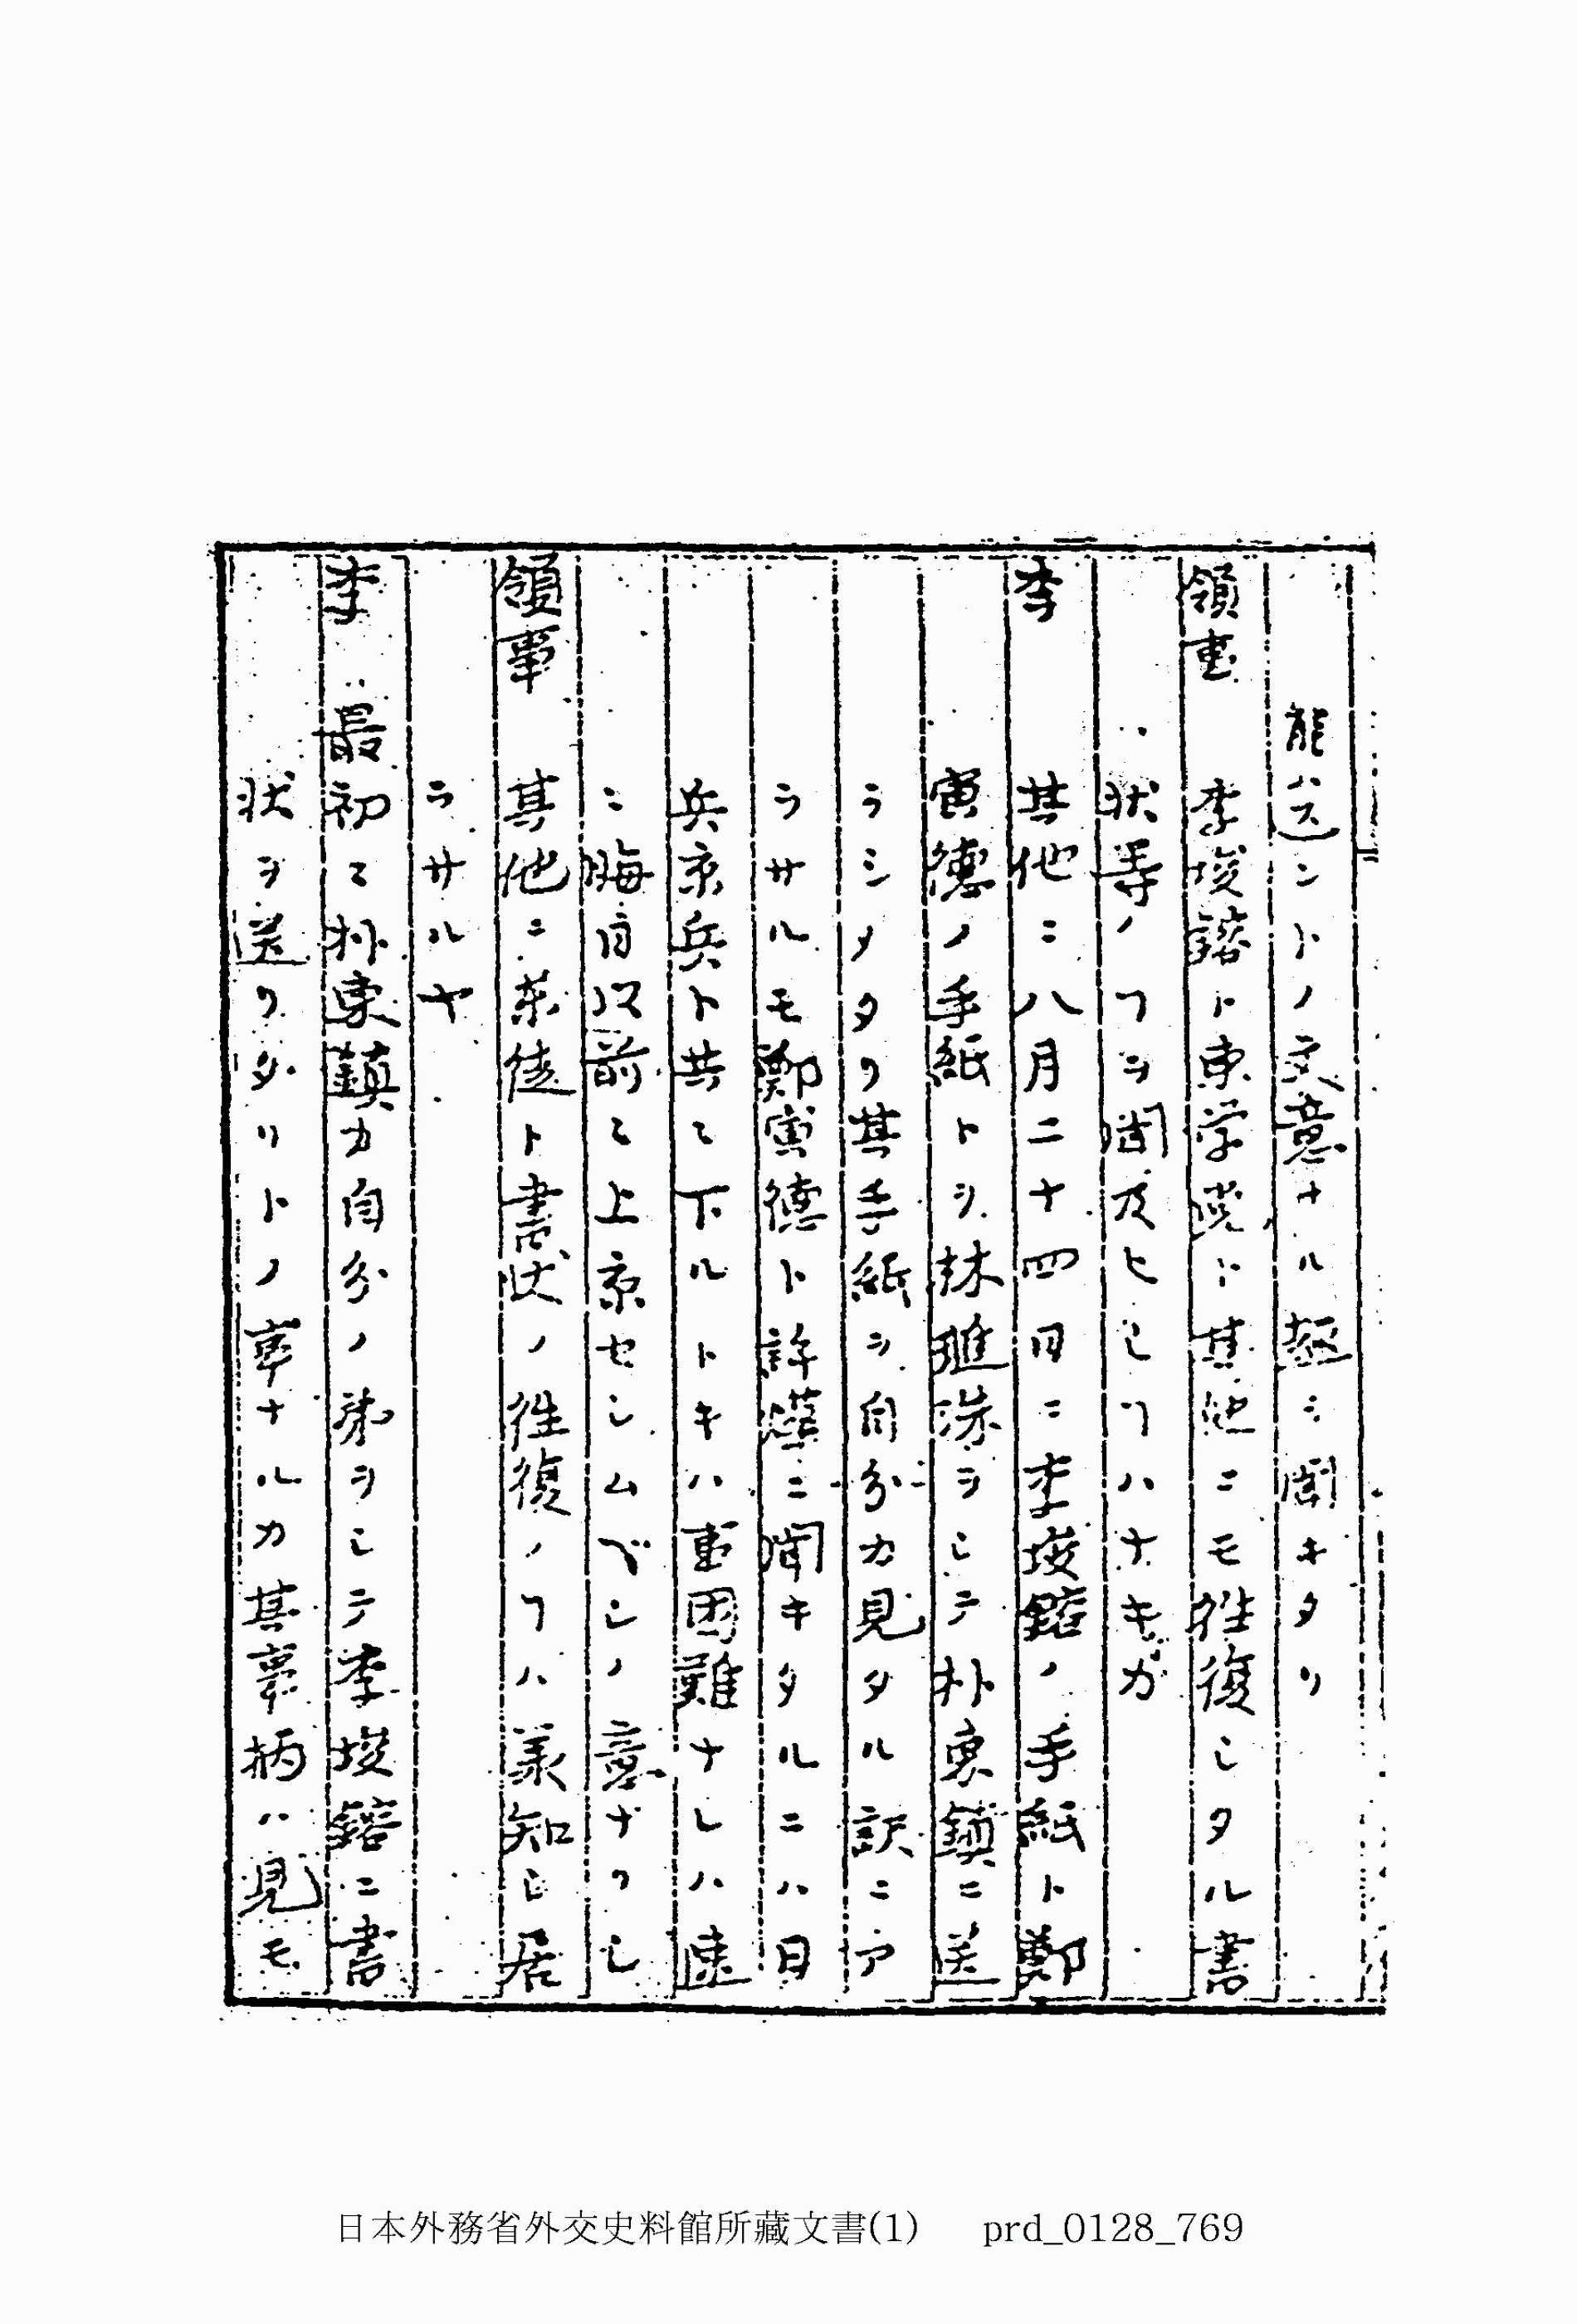 能ハストノ文意ナル趣ニ聞キタリ
領事 李埈鎔ト東学党ト其他ニモ往復シタル書
状等ノヿヲ聞及ヒシヿハナキカ
李 其他ニ八月二十四日ニ李埈鎔ノ手紙ト鄭
寅德ノ手紙トヲ林璡洙ヲシテ朴東鎮ニ送
ラシメタリ其手紙ヲ自分カ見タル訳ニア
ラサルモ鄭寅德ト許燁ニ聞キタルニハ日
兵京兵ト共ニ下ルトキハ事困難ナレハ速
ニ晦日以前ニ上京セシムベシノ意ナリシ
領事 其他ニ東徒ト書状ノ往復ノヿハ義知シ居
ラサルヤ
李 最初ニ朴東鎮カ自分ノ弟ヲシテ李埈鎔ニ書
状ヲ送リタリトノ事ナルカ其事柄ハ見モ
日本外務省外交史料館所藏文書(1) prd_0128_769